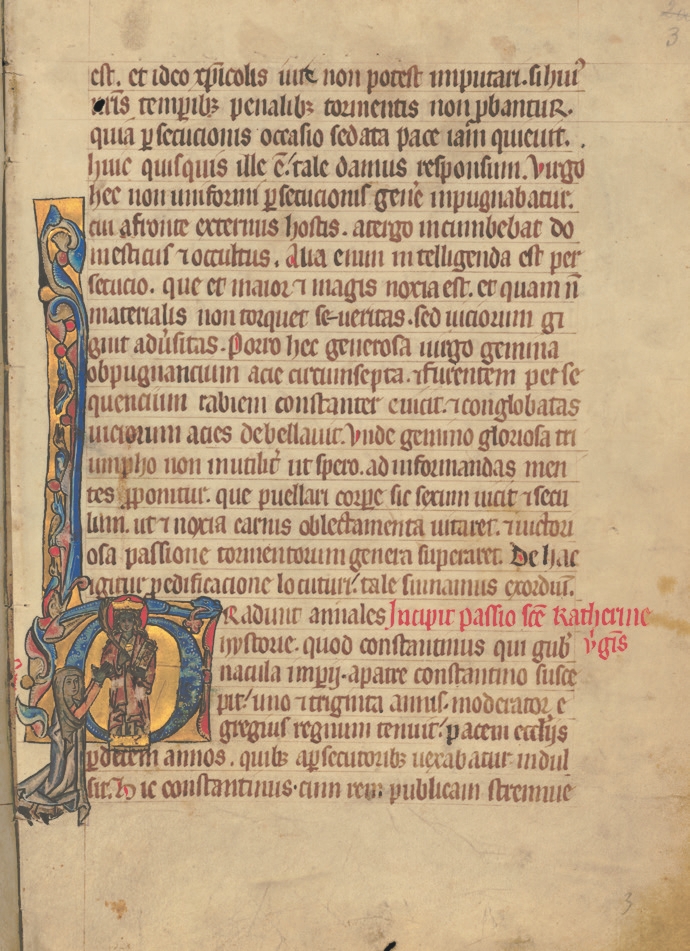 3
est. et ideo xp̄icolis iure non potest imputari. si hui᷒
tēporib; penalib; tormentis non ꝓbantur.
quia ꝑsecucionis occasio sedata pace iam quieuit.
huic quisquis ille ē. tale damus responsum. Virgo
hec non uniformi ꝑsecucionis gen̄e inpugnabatur.
cui afronte externus hostis. atergo incumbebat do
mesticus ⁊ occultus. Alia enim intelligenda est per
secucio. que et maior ⁊ magis noxia est. et quam n̄
materialis non torquet seueritas. sed uiciorum gi
gnit adūsitas. Porro hec generosa uirgo gemina
obpugnancium acie circumsepta. ⁊ furentem perse
quencium rabiem constanter euicit. ⁊ conglobatas
uiciorum acies debellauit. Vnde gemino gloriosa tri
umpho non inutilit᷑ ut spero. ad informandas men
tes ꝓponitur. que puellari corpe sic sexum uicit ⁊ secu
lum. ut ⁊ noxia carnis oblectamenta uitaret. ⁊ uictori
osa passione tormentorum genera superaret. De hac
igitur ꝑedificacione locuturi. tale sumamus exordiū.
Radunt annales Incipit passio scē katherine
hystorie. quod constantinus qui gub᷑ v᷑gīs
nacula imp̄ij. apatre constantino susce
pit. uno ⁊ triginta annis. moderator e
gregius regnum tenuit. pacem eccl̄ijs
ꝑ decem annos. quib; aꝑsecutorib; uexabatur indul
sit. Hic constantinus. cum rem publicam strennue
3